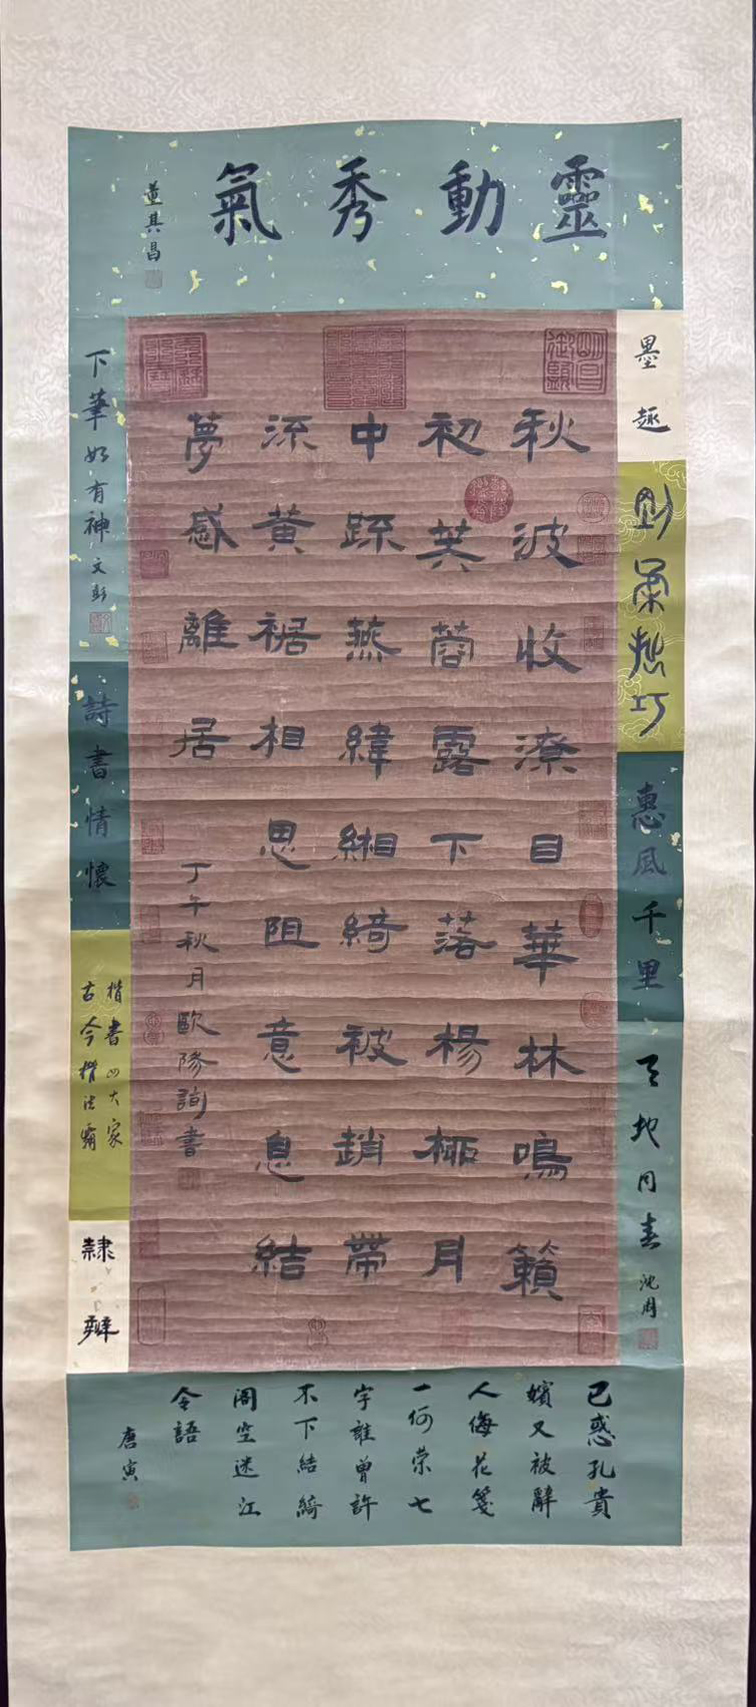 靈動秀氣
董其昌
墨趣
剑柔愁巧
惠風千里
天地同春
沈周
秋波收潦目華林鳴籟
初芙蓉露下落楊柳月
中踈燕緯緗綺被趙帶
流黃裾相思阻意息結
夢感離居
丁午秋月歐陽詢書
下筆如有神
文彭
詩書情懷
楷書四大家
古今楷法霸
隸辨
已惑孔貴
嬪又被辭
人侮花箋
一何榮七
字誰曾許
不下結綺
閣空迷江
令語
唐寅